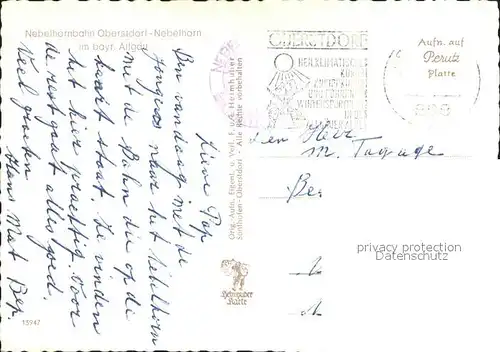 Nebelhornbahn Oberstdorf - Nebelhorn
im bayr. Allgäu
Lieve Pap
Ben vandaag met de
jongens naar het Nebelhorn
met de Bahn die op de
kaart staat. Ze vinden
het hier prachtig. Voor
de rest gaat alles goed.
Veel groeten
Hans Mat Bep
13947
Orig.-Aufn., Eigent. u. Verl. F. Jos. Heimhuber
Sonthofen-Oberstdorf - Alle Rechte vorbehalten
Heimhuber
Karte
OBERSTDORF
HEILKLIMATISCHER
KURORT
Aufn. auf
Perutz
Platte
den Heer
M.
Be
privacy protection
Datenschutz